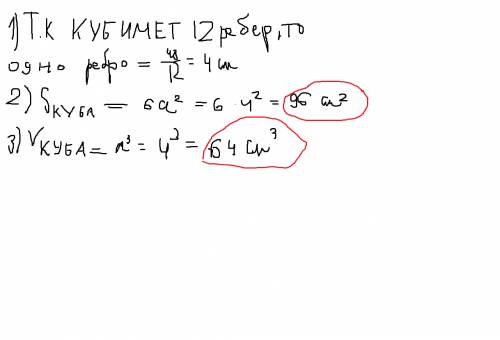 1) Т.К КУБИМЕТ 12 ребер, то
одно ребро = 48/12 = 4 см
2) SКУБА = 6a² = 6 · 4² = 96 см²
3) VКУБА = a³ = 4³ = 64 см³